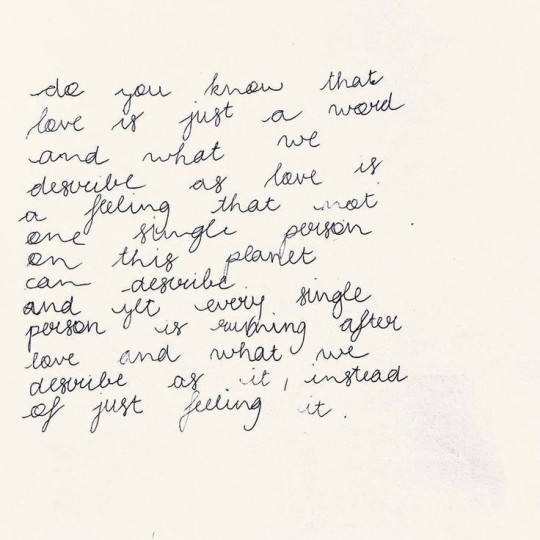 do you know that
love is just a word
and what we
describe as love is
a feeling that not
one single person
on this planet
can describe.
and yet every single
person is running after
love and what we
describe as it, instead
of just feeling it.